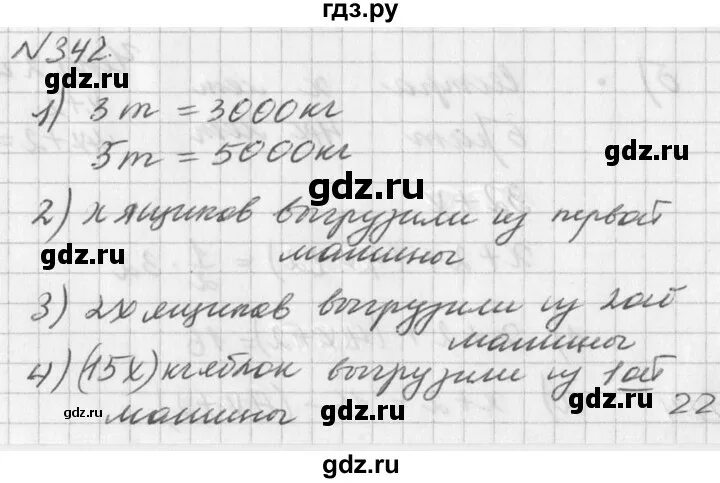 гдз.ру
N342.
gdz.ru
1) 3т = 3000кг
5т = 5000кг
gdz.ru
2) х ящиков выгрузили из первой
gdz.ru
машины
3) 2х ящиков выгрузили из 2ой
машины
4) (15х) кг яблок выгрузили из 1ой
gdz.ru
машины
gdz.ru
22
gdz.ru